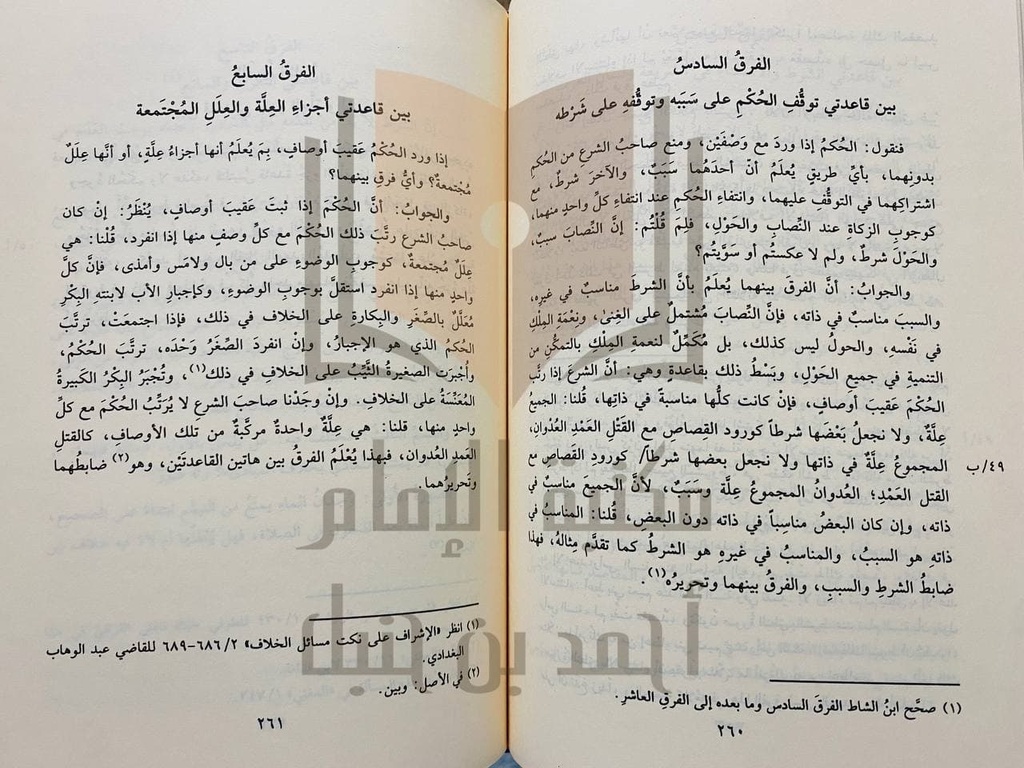 الفرقُ السادسُ
بين قاعدتي توقُّفِ الحُكْمِ على سَبَبِه وتوقُّفِهِ على شَرْطه
فنقول: الحُكمُ إذا وردَ مع وَصْفَيْن، ومنع صاحبُ الشرع من الحُكمِ
بدونِهما، بأيِّ طريقٍ يُعلمُ أنَّ أحدَهما سَبَبٌ، والآخرَ شرطٌ، مع
اشتراكِهما في التوقُّفِ عليهما، وانتفاءِ الحُكمِ عند انتفاءِ كلِّ واحدٍ منهما،
كوجوبِ الزكاةِ عند النِّصابِ والحَوْلِ، فلِمَ قُلْتُم: إنَّ النِّصابَ سببٌ،
والحَوْلَ شرطٌ، ولم لا عكستُم أو سَوَّيتُم؟
والجوابُ: أنَّ الفرقَ بينهما يُعلَمُ بأنَّ الشرطَ مناسبٌ في غيرِه،
والسببَ مناسبٌ في ذاته، فإنَّ النِّصابَ مُشتملٌ على الغِنىٰ، ونِعْمةِ المِلْكِ
في نَفْسِه، والحولُ ليس كذلك، بل مُكَمِّلٌ لنعمةِ المِلكِ بالتمكُّنِ من
التنميةِ في جميعِ الحَوْلِ، وبَسْطُ ذلك بقاعدةٍ وهي: أنَّ الشرعَ إذا رتَّب
الحُكمَ عَقيبَ أوصافٍ، فإنْ كانت كلُّها مناسبةً في ذاتِها، قُلنا: الجميعُ
عِلَّةٌ، ولا نجعلُ بَعْضَها شرطاً كورودِ القِصاصِ مع القَتْلِ العَمْدِ العُدْوانِ،
المجموعُ عِلَّةٌ في ذاتها ولا نجعل بعضها شرطاً/ كورودِ القصاصِ مع
٤٩/ب
القتل العَمْدِ؛ العُدوانُ المجموعُ عِلَّة وسَبَبٌ، لأنَّ الجميعَ مناسبٌ في
ذاته، وإن كان البعضُ مناسباً في ذاته دون البعضِ، قُلنا: المناسبُ في
ذاتِه هو السببُ، والمناسبُ في غيرِه هو الشرطُ كما تقدَّم مِثالُهُ، فهذا
ضابطُ الشرطِ والسببِ، والفرقُ بينهما وتحريرُه(١).
(١) صحَّح ابنُ الشاط الفرقَ السادس وما بعده إلى الفرقِ العاشر.
٢٦٠
الفرقُ السابعُ
بين قاعدتي أجزاءِ العِلَّة والعِلَلِ المُجْتَمعة
إذا ورد الحُكْمُ عَقيبَ أوصافٍ، بِمَ يُعلَمُ أنها أجزاءُ علَّةٍ، أو أنَّها عِلَلٌ
مُجْتمعةٌ؟ وأيُّ فرقٍ بينهما؟
والجوابُ: أنَّ الحُكْمَ إذا ثبتَ عَقيبَ أوصافٍ، يُنْظَرُ: إنْ كان
صاحبُ الشرعِ رتَّبَ ذلك الحُكمَ مع كلِّ وصفٍ منها إذا انفرد، قُلْنا: هي
عِلَلٌ مُجتمعةٌ، كوجوبِ الوضوءِ على من بال ولامَس وأمذى، فإنَّ كلَّ
واحدٍ منها إذا انفرد استقلَّ بوجوبِ الوضوءِ، وكإجبارِ الأب لابنتهِ البِكْرِ
مُعَلَّلٌ بالصِّغَرِ والبِكارةِ على الخلاف في ذلك، فإذا اجتمعَتْ، ترتَّبَ
الحُكمُ الذي هو الإجبارُ، وإنْ انفردَ الصِّغَرُ وَحْدَه، ترتَّبَ الحُكْمُ،
وأُجْبِرَت الصغيرةُ الثَّيِّبُ على الخلافِ في ذلك(١)، وتُجْبَرُ البِكْرُ الكَبيرةُ
المُعَنَّسَةُ على الخلافِ. وإنْ وجَدْنا صاحبَ الشرعِ لا يُرَتِّبُ الحُكْمَ مع كلِّ
واحدٍ منها، قلنا: هي عِلَّةٌ واحدةٌ مركَّبةٌ من تلك الأوصافِ، كالقتلِ
العَمدِ العُدوان، فبهذا يُعْلَمُ الفرقُ بين هاتين القاعدتَيْن، وهو(٢) ضابطُهما
وتحريرُهما.
(١) انظر «الإشراف على نكت مسائل الخلاف» ٢/ ٦٨٦-٦٨٩ للقاضي عبد الوهاب
البغدادي.
(٢) في الأصل: وبين.
٢٦١
مكتبة الإمام
أحمد بن حنبل